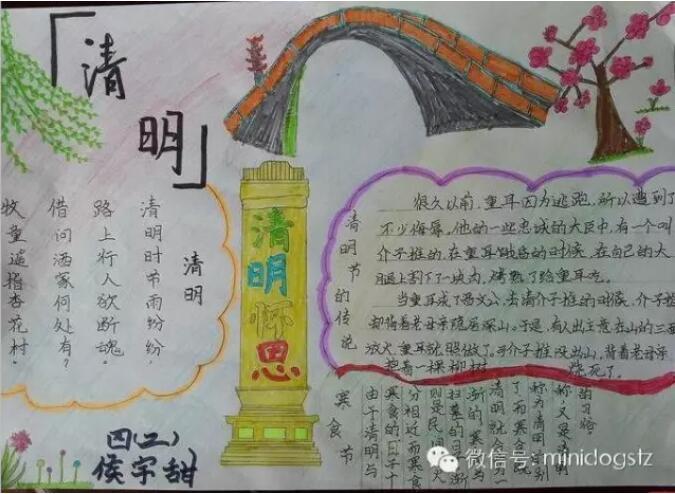 「清明」
清明
清明时节雨纷纷，
路上行人欲断魂。
借问酒家何处有？
牧童遥指杏花村。
清明怀思
清明节的传说
很久以前，重耳因为逃跑，所以遭到了
不少侮辱，他的一些忠诚的大臣中，有一个叫
介子推的，在重耳饿昏的时候，在自己的大
腿上割下了一块肉，烤熟了给重耳吃。
当重耳成了晋文公，去请介子推的时候，介子推
却背着老母亲隐居深山。于是，有人出主意在山的三面
放火，重耳就照做了。介子推没出山，背着老母亲
抱着一棵柳树
烧死了。
寒食节
由于清明与
寒食的日子十
分相近，而寒食
则是民间
扫墓的日
清明就会
了，而寒食
称为清明
称，又是
的习俗。
四(二)
侯宇甜
微信号: minidogstz